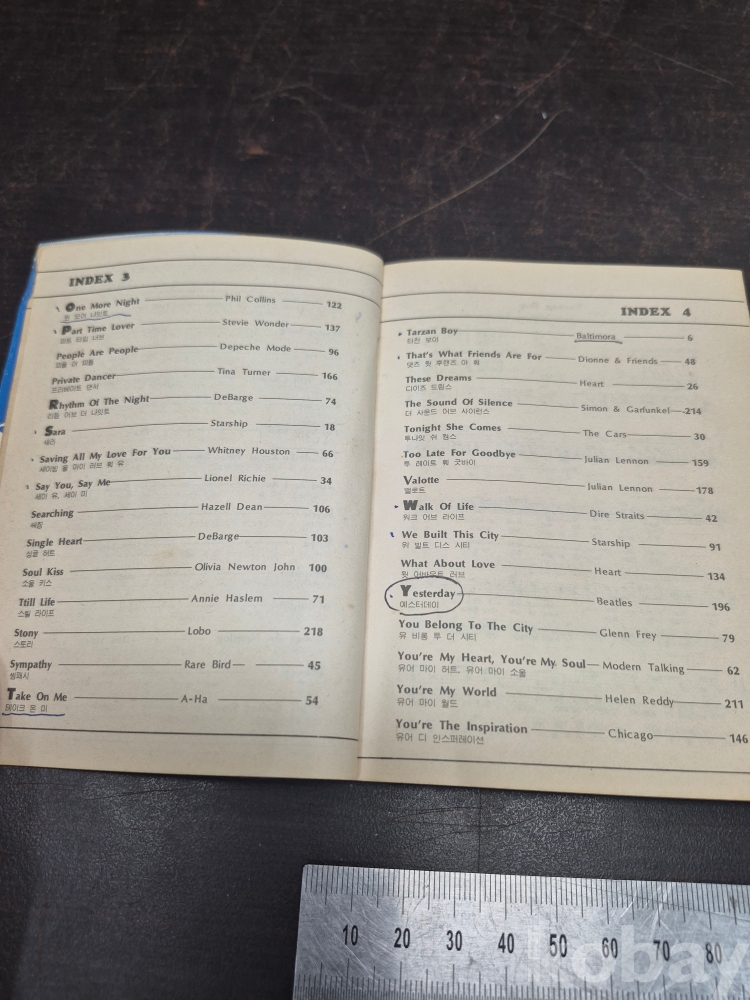 INDEX 3
One More Night Phil Collins 122
원 모어 나잇트
Part Time Lover Stevie Wonder 137
파트 타임 러브
People Are People Depeche Mode 96
피플 아 피플
Private Dancer Tina Turner 166
프라이베이트 댄서
Rhythm Of The Night DeBarge 74
리듬 어브 더 나잇트
Sara Starship 18
세라
Saving All My Love For You Whitney Houston 66
세이빙 올 마이 러브 훠 유
Say You, Say Me Lionel Richie 34
세이 유, 세이 미
Searching Hazell Dean 106
써칭
Single Heart DeBarge 103
싱글 허트
Soul Kiss Olivia Newton John 100
소울 키스
Ttill Life Annie Haslem 71
스틸 라이프
Stony Lobo 218
스토니
Sympathy Rare Bird 45
씸파시
Take On Me A-Ha 54
테이크 온 미
INDEX 4
Tarzan Boy Baltimora 6
타잔 보이
That's What Friends Are For Dionne & Friends 48
댓즈 왓 후렌즈 아 훠
These Dreams Heart 26
디이즈 드림스
The Sound Of Silence Simon & Garfunkel 214
더 사운드 어브 사이런스
Tonight She Comes The Cars 30
투나잇 쉬 컴스
Too Late For Goodbye Julian Lennon 159
투 레이트 훠 굿바이
Valotte Julian Lennon 178
발로트
Walk Of Life Dire Straits 42
워크 어브 라이프
We Built This City Starship 91
위 빌트 디스 시티
What About Love Heart 134
왓 어바우트 러브
Yesterday Beatles 196
예스터데이
You Belong To The City Glenn Frey 79
유 비롱 투 더 시티
You're My Heart, You're My Soul Modern Talking 62
유어 마이 허트, 유어 마이 소울
You're My World Helen Reddy 211
유어 마이 월드
You're The Inspiration Chicago 146
유어 디 인스퍼레이션
10 20 30 40 50 60 70 80
kobay